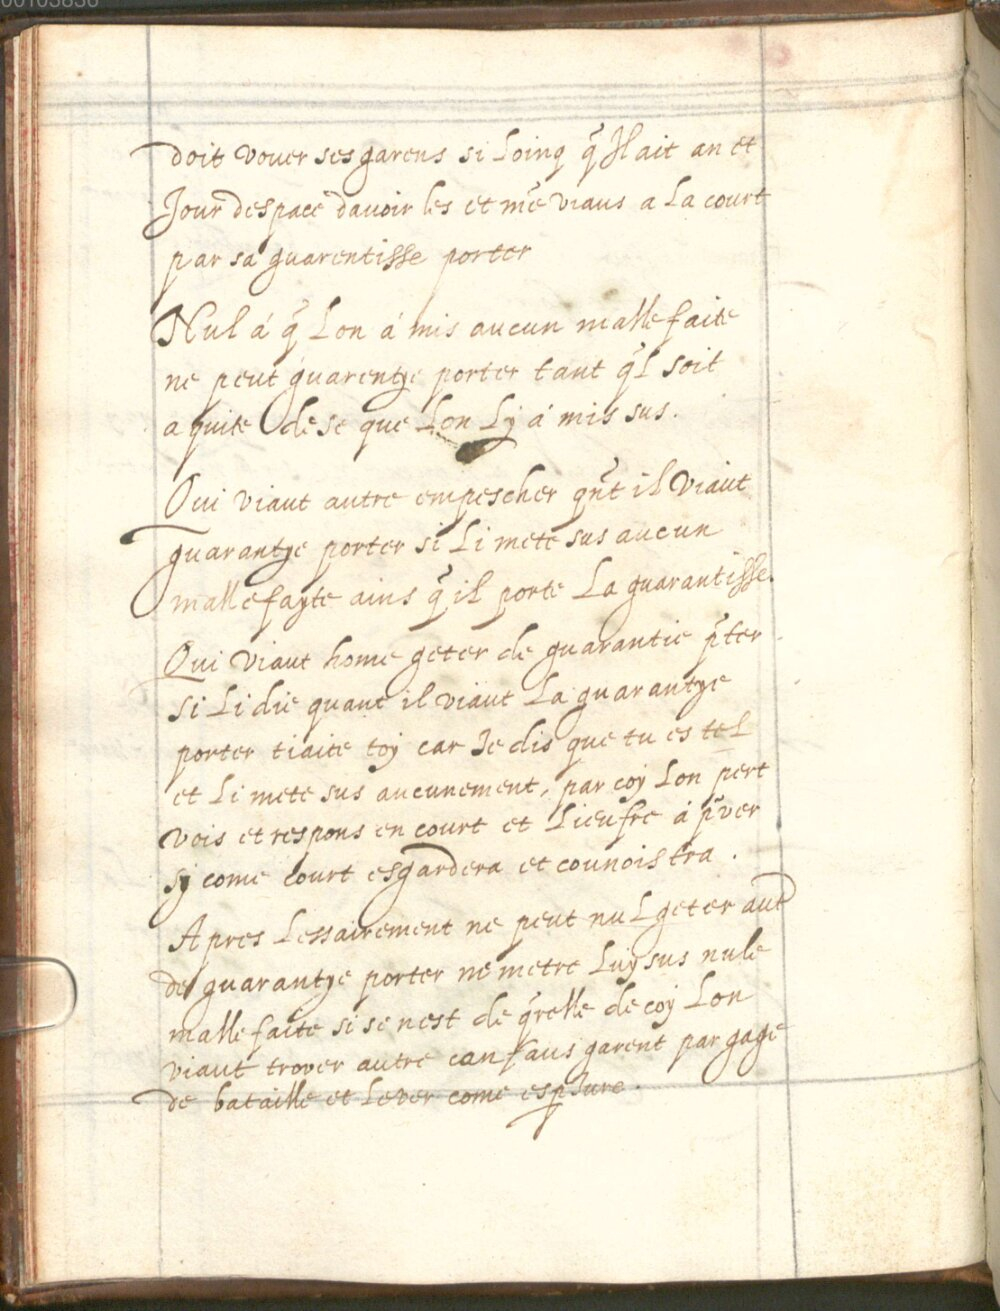 00103836
doit vover ses garens si Loing q̃ Jl ait an et
Jour despace davoir les et mẽ viaus a La court
par sa guarentisse porter
Nul á q̃ Lon á mis aucun malle faite
ne peut guarentye porter tant q̃l soit
a quite de se que Lon Ly á mis sus.
Qui viaut autre empescher qñt il viaut
guarantye porter si Li mete sus aucun
malle fayte ains q̃ il porte La guarantisse.
Qui viaut home geter de guarantie p̃ter
si Li die quant il viaut La guarantye
porter tiaite toy car Je dis que tu es tel
et Li mete sus aucunement, par coy Lon pert
vois et respons en court et Lieufre á p̃ver
sy come court esgardera et counoistra.
Apres Lessairement ne peut nul geter aut
de guarantye porter ne metre Luy sus nule
malle faite si se nest de q̃relle de coy Lon
viaut trover autre can faus garent par gage
de bataille et Lever come espJure.